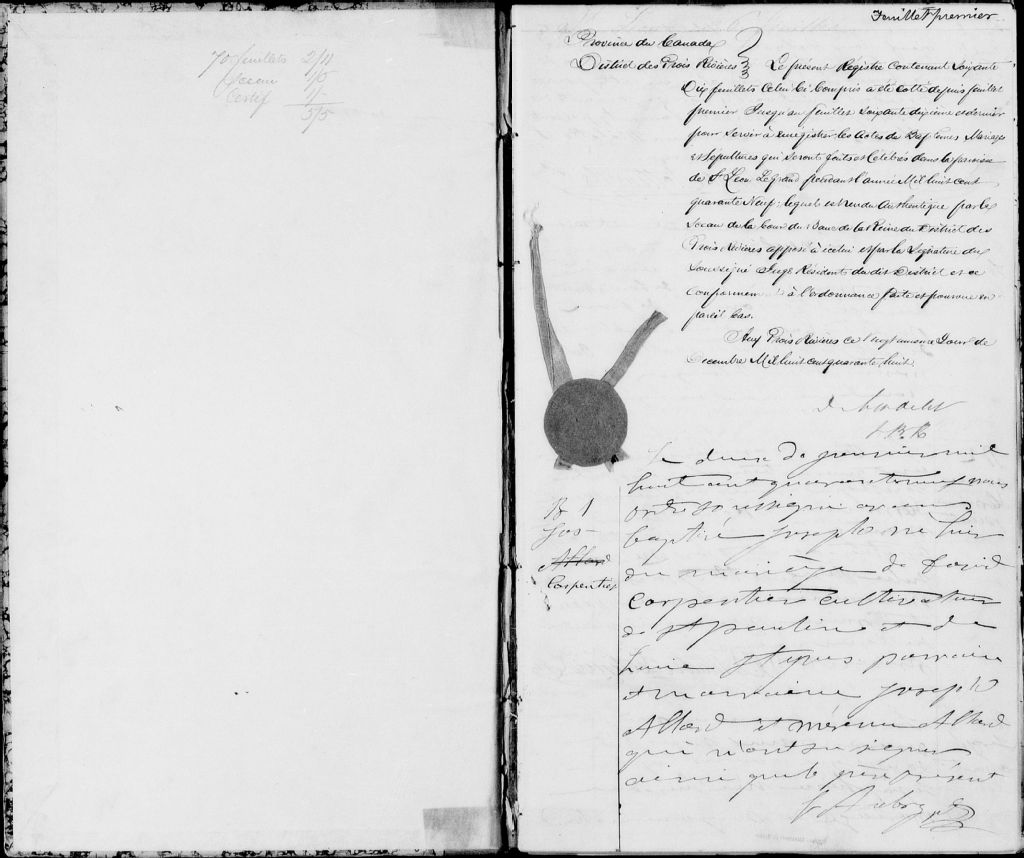 70 feuillets 2/11
Sceau 1/6
Certif 1/-
5/5
Feuillet premier
Province du Canada
District des Trois Rivières Le présent Registre Contenant Soixante
Dix feuillets Celui Ci Compris a été Cotté depuis feuillet
premier Jusqu'au feuillet Soixante dixième et dernier
pour Servir à enregistrer les Actes de Baptemes Mariages
et Sépultures qui Seront faits et Célébrés dans la paroisse
de St Léon Legrand pendant l'année Mil huit cent
quarante Neuf; lequel est rendu Authentique par le
Sceau de la Cour du Banc de la Reine du District des
Trois Rivières apposé à icelui et par la Signature du
Soussigné Juge Résident du dit District et ce
Conformem à l'ordonnance faite et pourvue en
pareil Cas.
Aux Trois Rivières ce Vingt Jour de
Décembre Mil huit cent quarante huit.
B 1
Jos
Allard
Carpentier
Le de janvier mil
huit cent quarante neuf nous
prêtre soussigné avons
baptisé Joseph né hier
du mariage de David
Carpentier cultivateur
de St Paulin et de
parrain
et marraine Joseph
Allard et Allard
qui n'ont su signer
ainsi que le père présent